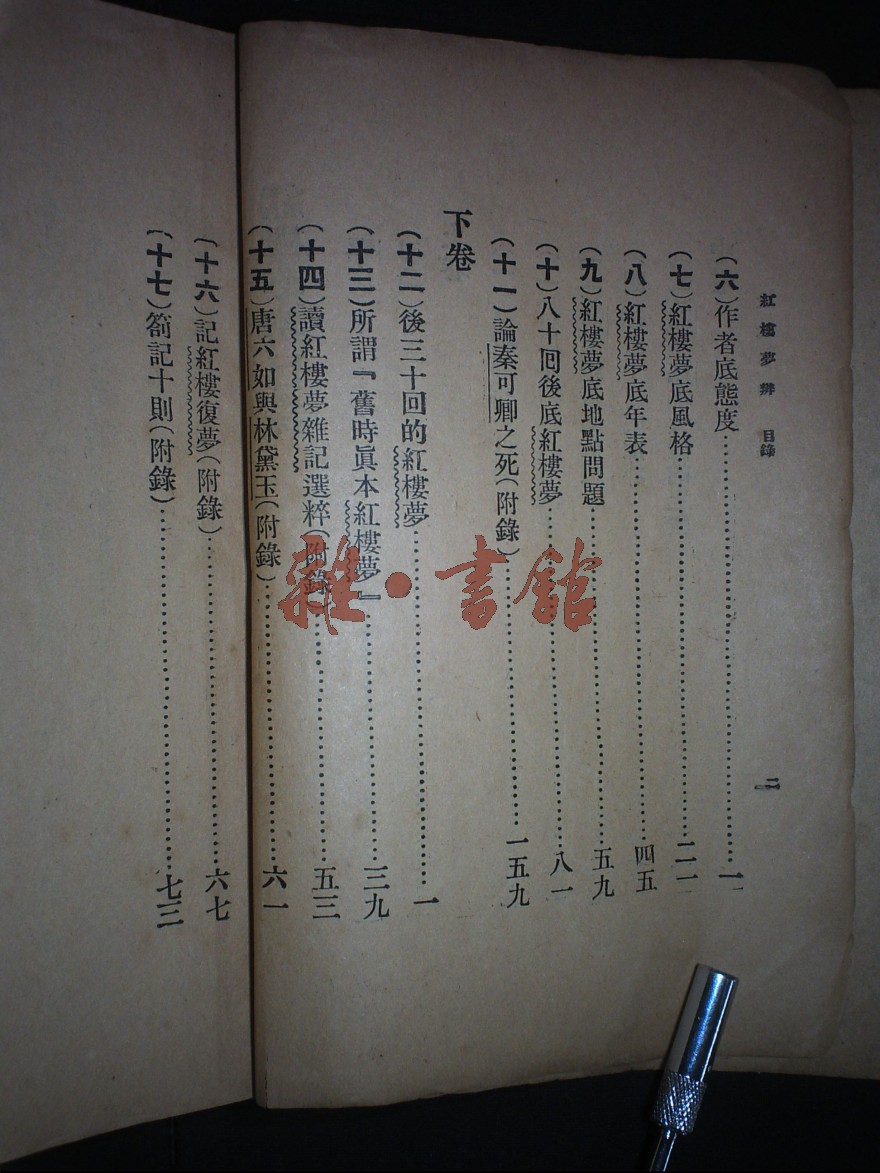 紅樓夢辨 目錄 二
(六)作者底態度……一
(七)紅樓夢底風格……二一
(八)紅樓夢底年表……四五
(九)紅樓夢底地點問題……五九
(十)八十囘後底紅樓夢……八一
(十一)論秦可卿之死(附錄)……一五九
下卷
(十二)後三十回的紅樓夢……一
(十三)所謂『舊時眞本紅樓夢』……三九
(十四)讀紅樓夢雜記選粹(附錄)……五三
(十五)唐六如與林黛玉(附錄)……六一
(十六)記紅樓復夢(附錄)……六七
(十七)劄記十則(附錄)……七三
雜·書館